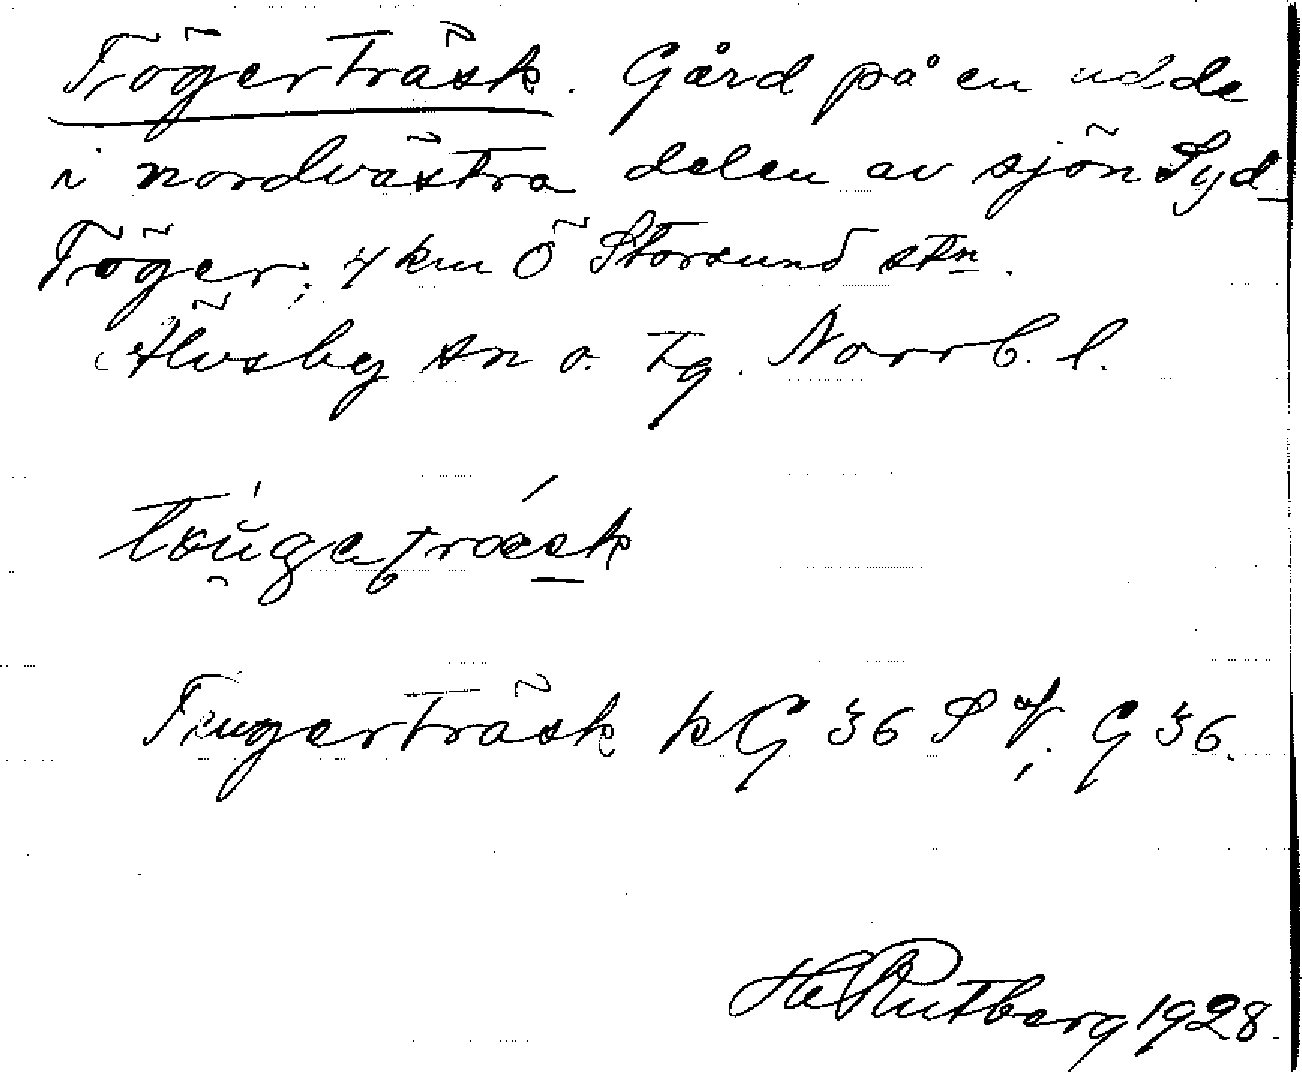 Tögerträsk. Gård på en udde
i nordvästra delen av sjön Syd-
Töger; 4 km Ö Storsund stn.
Älvsby sn o. tg. Norrb. l.
Teugerträsk kG 36 SV; G 36.
He Rutberg 1928.